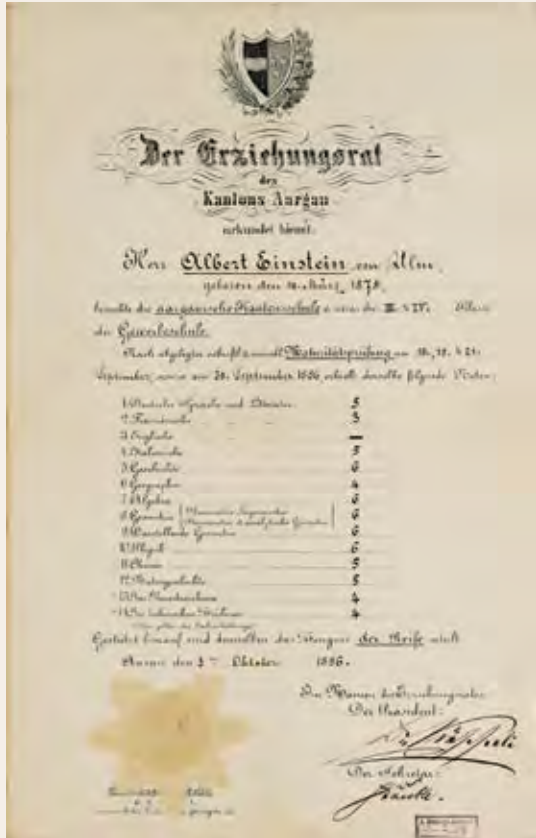 Der Erziehungsrat
des
Kantons Aargau
urkundet hiemit:
Herr Albert Einstein von Ulm,
geboren den 14. März 1879,
besuchte die aargauische Kantonsschule & zwar die III. & IV. Klasse
der Gewerbeschule.
Nach abgelegter schriftl. & mündl. Maturitätsprüfung am 18., 19. & 21.
September, sowie am 30. September 1896, erhielt derselbe folgende Noten:
1. Deutsche Sprache und Litteratur 5
2. Französische 3
3. Englische —
4. Italienische 5
5. Geschichte 6
6. Geographie 4
7. Algebra 6
8. Geometrie 6
9. Darstellende Geometrie 6
10. Physik 6
11. Chemie 5
12. Naturgeschichte 5
13. Im Kunstzeichnen 4
14. Im technischen Zeichnen 4
Gestützt hierauf wird demselben das Zeugnis der Reife erteilt.
Aarau den 3ten Oktober 1896.
Im Namen des Erziehungsrates
Der Präsident:
Der Sekretär: